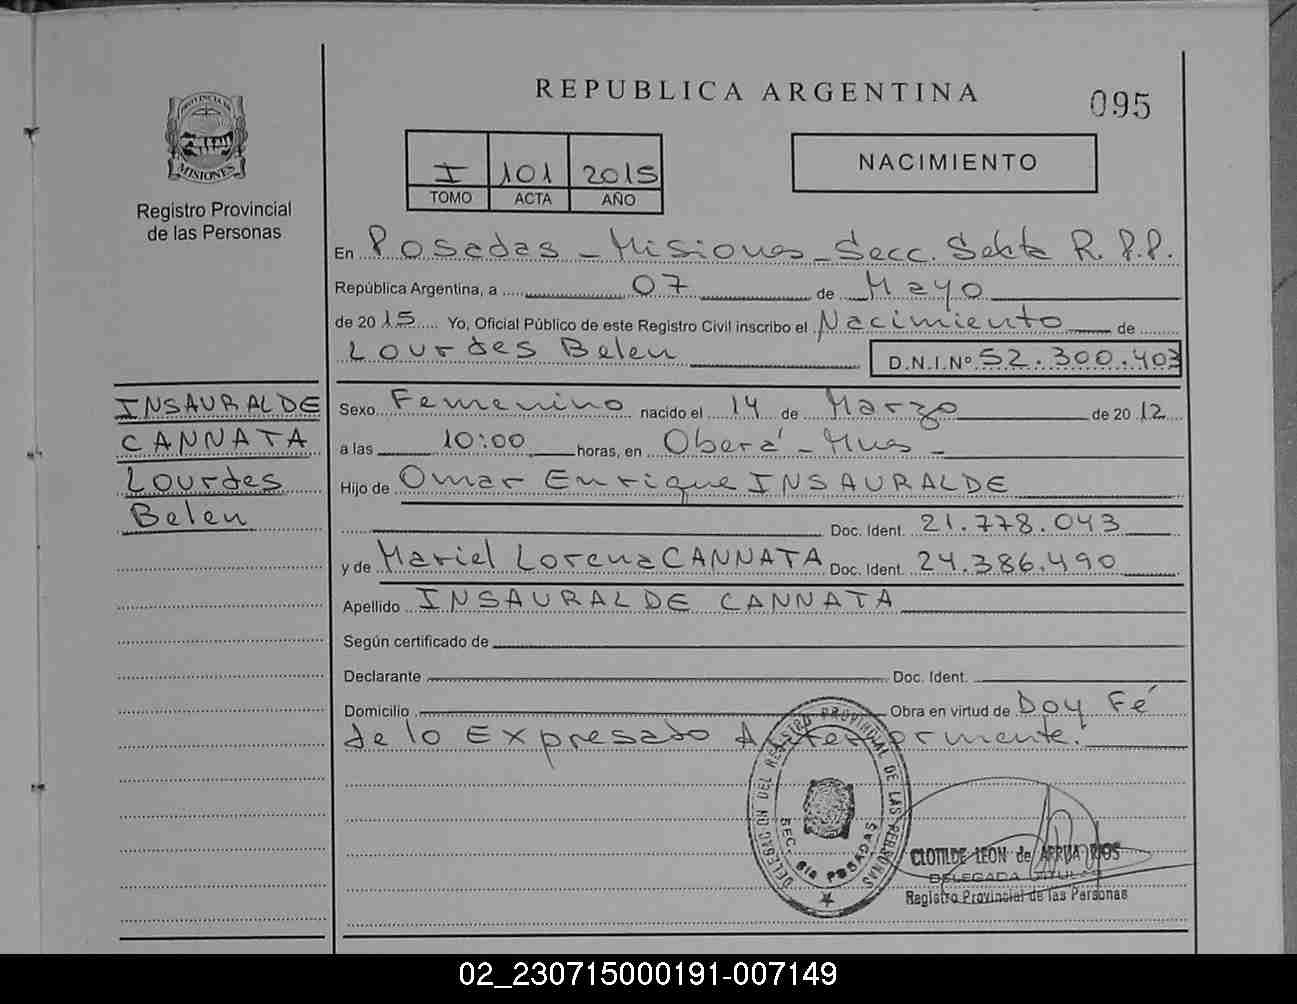 REPUBLICA ARGENTINA
095
PROVINCIA DE
MISIONES
Registro Provincial
de las Personas
I 101 2015
TOMO ACTA AÑO
NACIMIENTO
En Posadas - Misiones - Secc. Sexta R.P.P.
República Argentina, a 07 de Mayo
de 2015 Yo, Oficial Público de este Registro Civil inscribo el Nacimiento de
Lourdes Belen D.N.I.Nº 52.300.403
INSAURALDE
CANNATA
Lourdes
Belen
Sexo Femenino nacido el 14 de Marzo de 2012
a las 10:00 horas, en Oberá - Mnes -
Hijo de Omar Enrique INSAURALDE
Doc. Ident. 21.778.043
y de Mariel Lorena CANNATA Doc. Ident. 24.386.490
Apellido INSAURALDE CANNATA
Según certificado de
Declarante Doc. Ident.
Domicilio Obra en virtud de Doy Fé
de lo Expresado Anteriormente.
DELEGACION DEL REGISTRO PROVINCIAL DE LAS PERSONAS
SEC. 6ta POSADAS
CLOTILDE LEON de ARRUA RIOS
DELEGADA TITULAR
Registro Provincial de las Personas
02_230715000191-007149